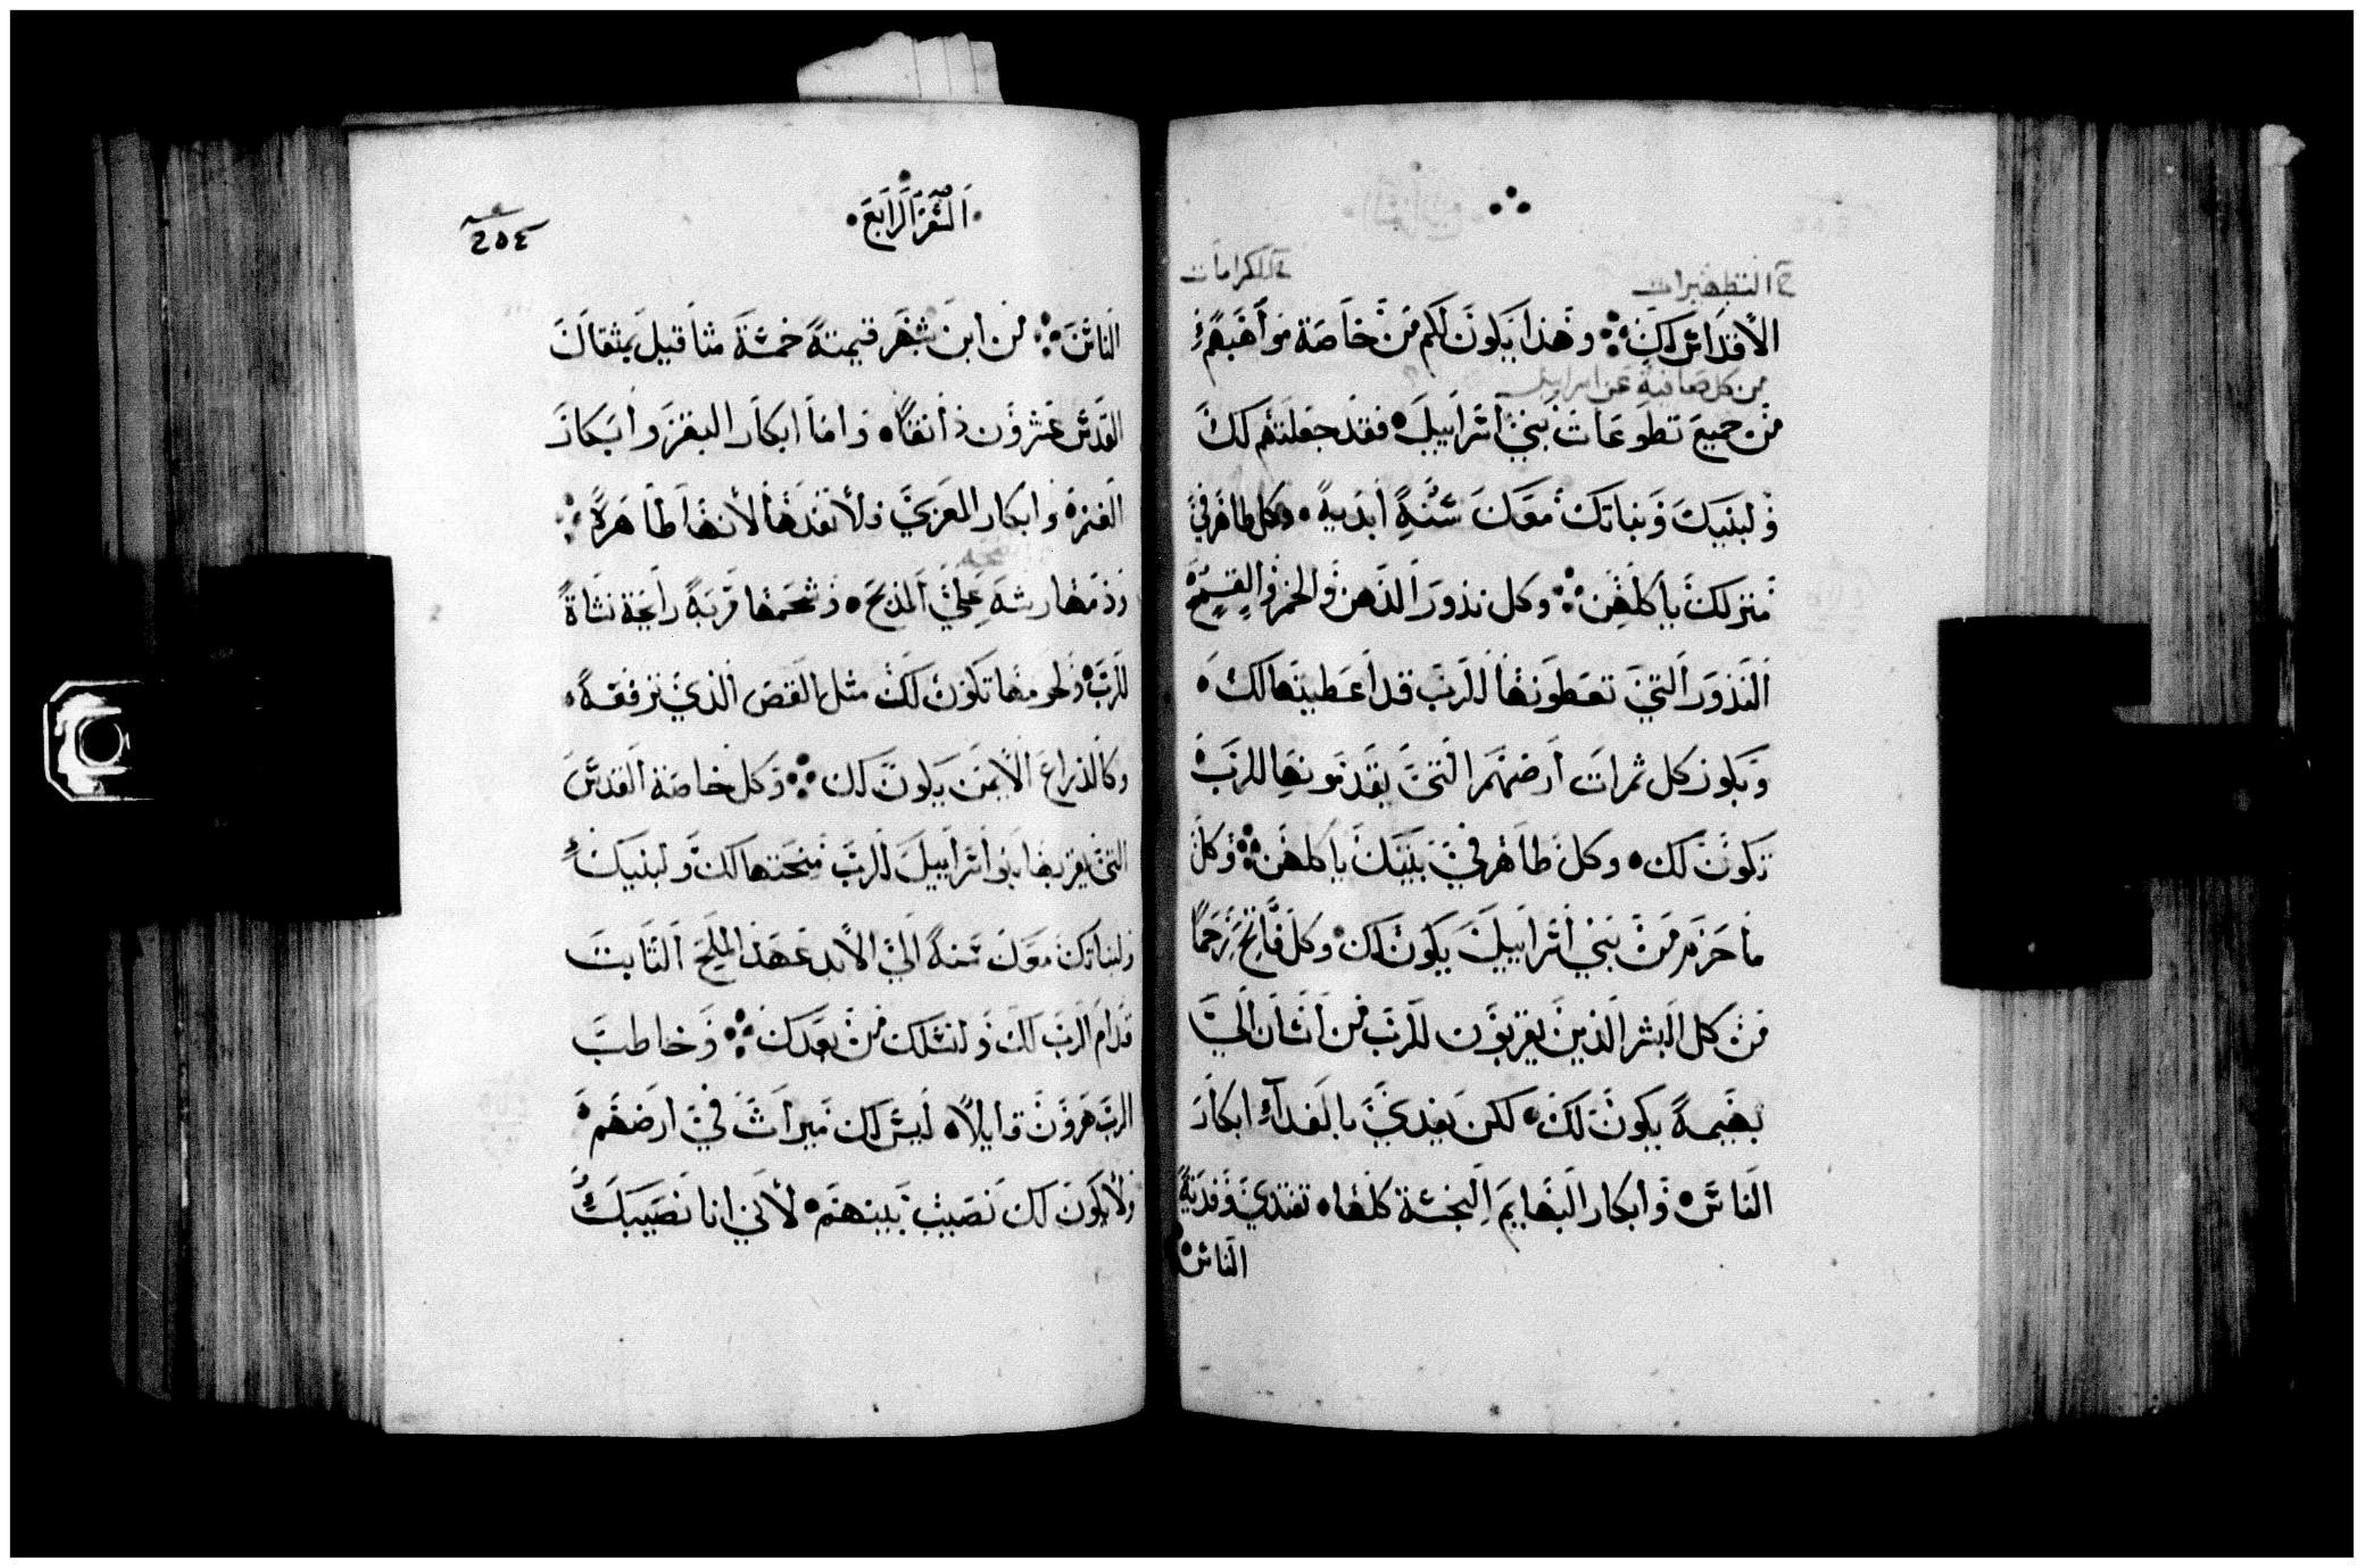 في التطهيرات في الكرامات
الاقداس لك وهذا يكون لكم من خاصة مواهبهم
من كل صعافية عن اسراييل
من جميع تطوعات بني اسراييل فقد جعلتهم لك
ولبنيك وبناتك معك سنة ابدية وكل طاهر في
منزلك ياكلهن وكل نذور الدهن والخمر والقمح
النذور التي تعطونها للرب قد اعطيتها لك
ويكون كل ثمرات ارضهم التي يقدمونها للرب
تكون لك وكل طاهر في بيتك ياكلهن وكل
ما حرم من بني اسراييل يكون لك وكل فاتح رحما
من كل البشر الذين يقربون للرب من انسان الي
بهيمة يكون لك لكن يفدي بالفداء ابكار
الناس وابكار البهايم النجسة كلها تفتدي وفدية
الناس
السفر الرابع
٢٥٤
الناس من ابن شهر قيمته خمسة مثاقيل بمثقال
القدس عشرون دانقا واما ابكار البقر وابكار
الغنم وابكار المعزي ولا تفدها لانها طاهرة
ودمها رشه علي المذبح وشحمها قربة رايحة
للرب ولحومها تكون لك مثل القص الذي ترفعه
وكالذراع الايمن يكون لك وكل خاصة القدس
التي يقربها بنو اسراييل للرب منحتها لك ولبنيك
ولبناتك معك سنة الي الابد عهد الملح الثابت
قدام الرب لك ولنسلك من بعدك وخاطب
الرب هرون قايلا ليس لك ميراث في ارضهم
ولا يكون لك نصيب بينهم لاني انا نصيبك